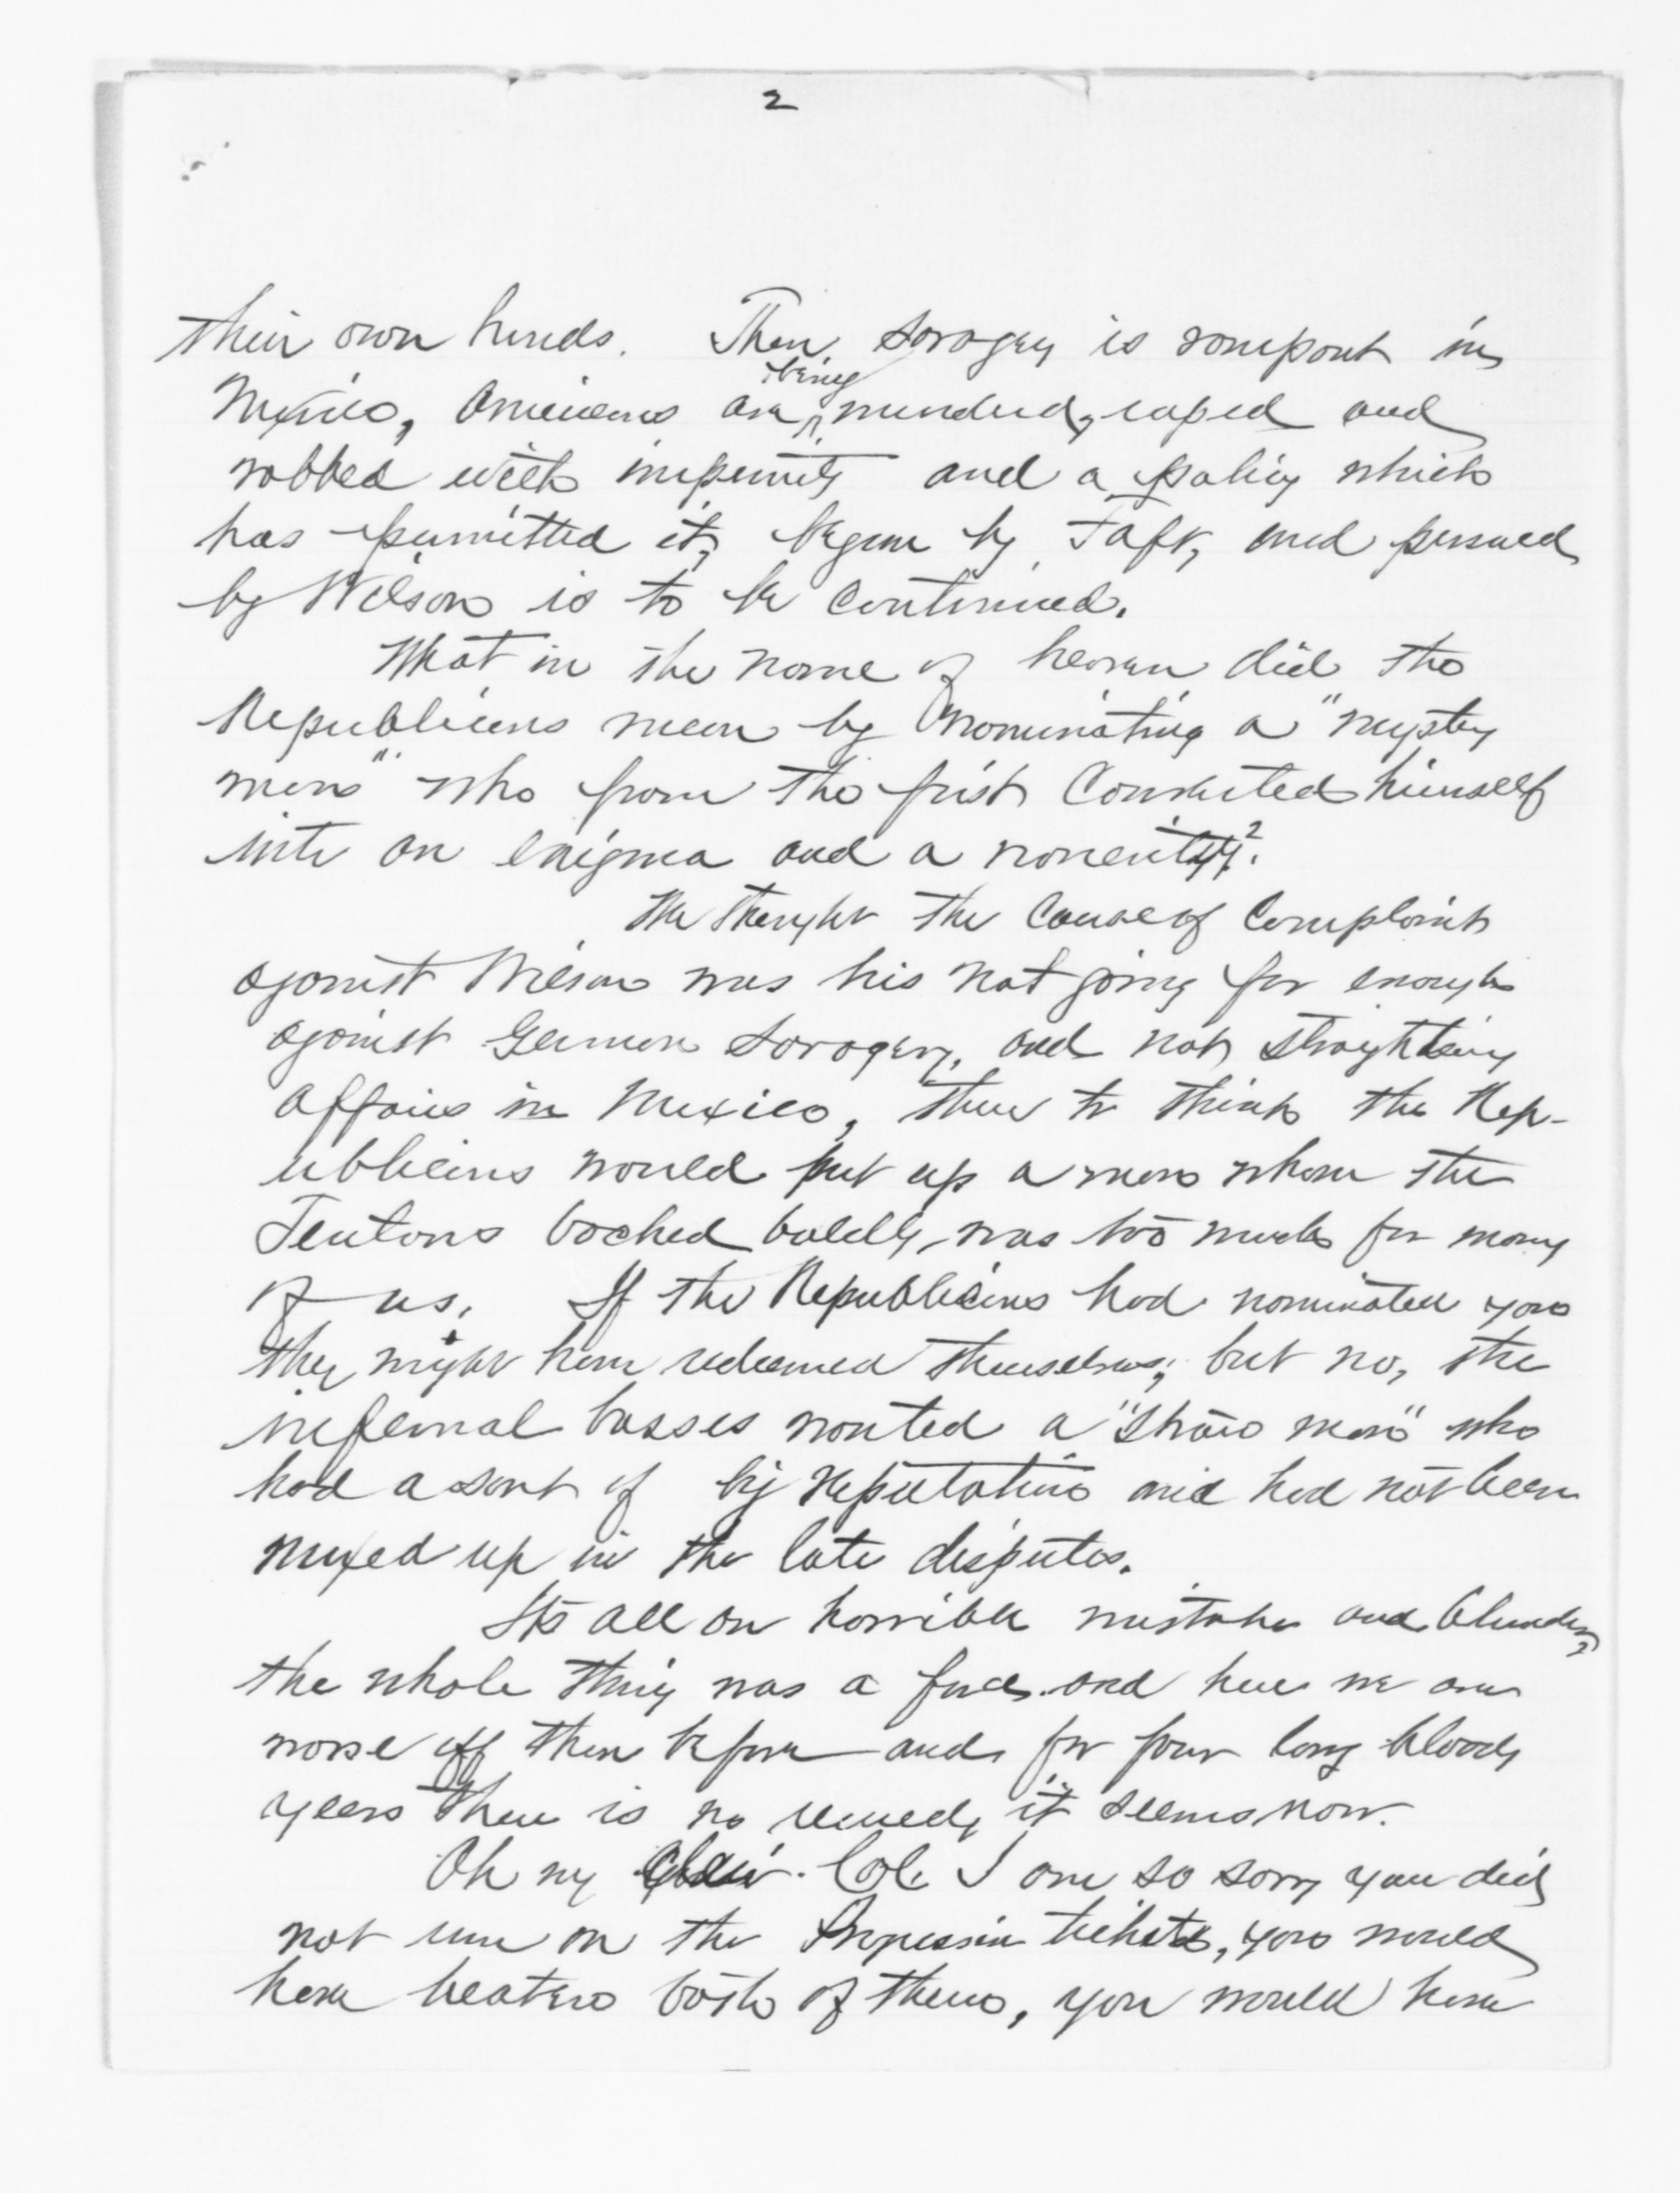 2
their own hands. Then savagery is rampant in
being
Mexico, Americans are murdered, raped and
robbed with impunity and a policy which
has permitted it, begun by Taft, and pursued
by Wilson is to be continued.
What in the name of heaven did the
Republicans mean by nominating a "mystery
man" who from the first converted himself
into an enigma and a nonentity?
We thought the cause of complaint
against Wilson was his not going far enough
against German savagery, and not straightening
affairs in Mexico, then to think the Rep-
ublicans would put up a man whom the
Teutons backed boldly, was too much for many
of us. If the Republicans had nominated you
they might have redeemed themselves; but no, the
infernal bosses wanted a "straw man" who
had a sort of big reputation and had not been
mixed up in the late disputes.
Its all an horrible mistake and blunder,
the whole thing was a farce and here we are
worse off then before and for four long bloody
years there is no remedy it seems now.
Oh my Col. I am so sorry you did
not run on the Progressive ticket, you would
have beaten both of them, you would have